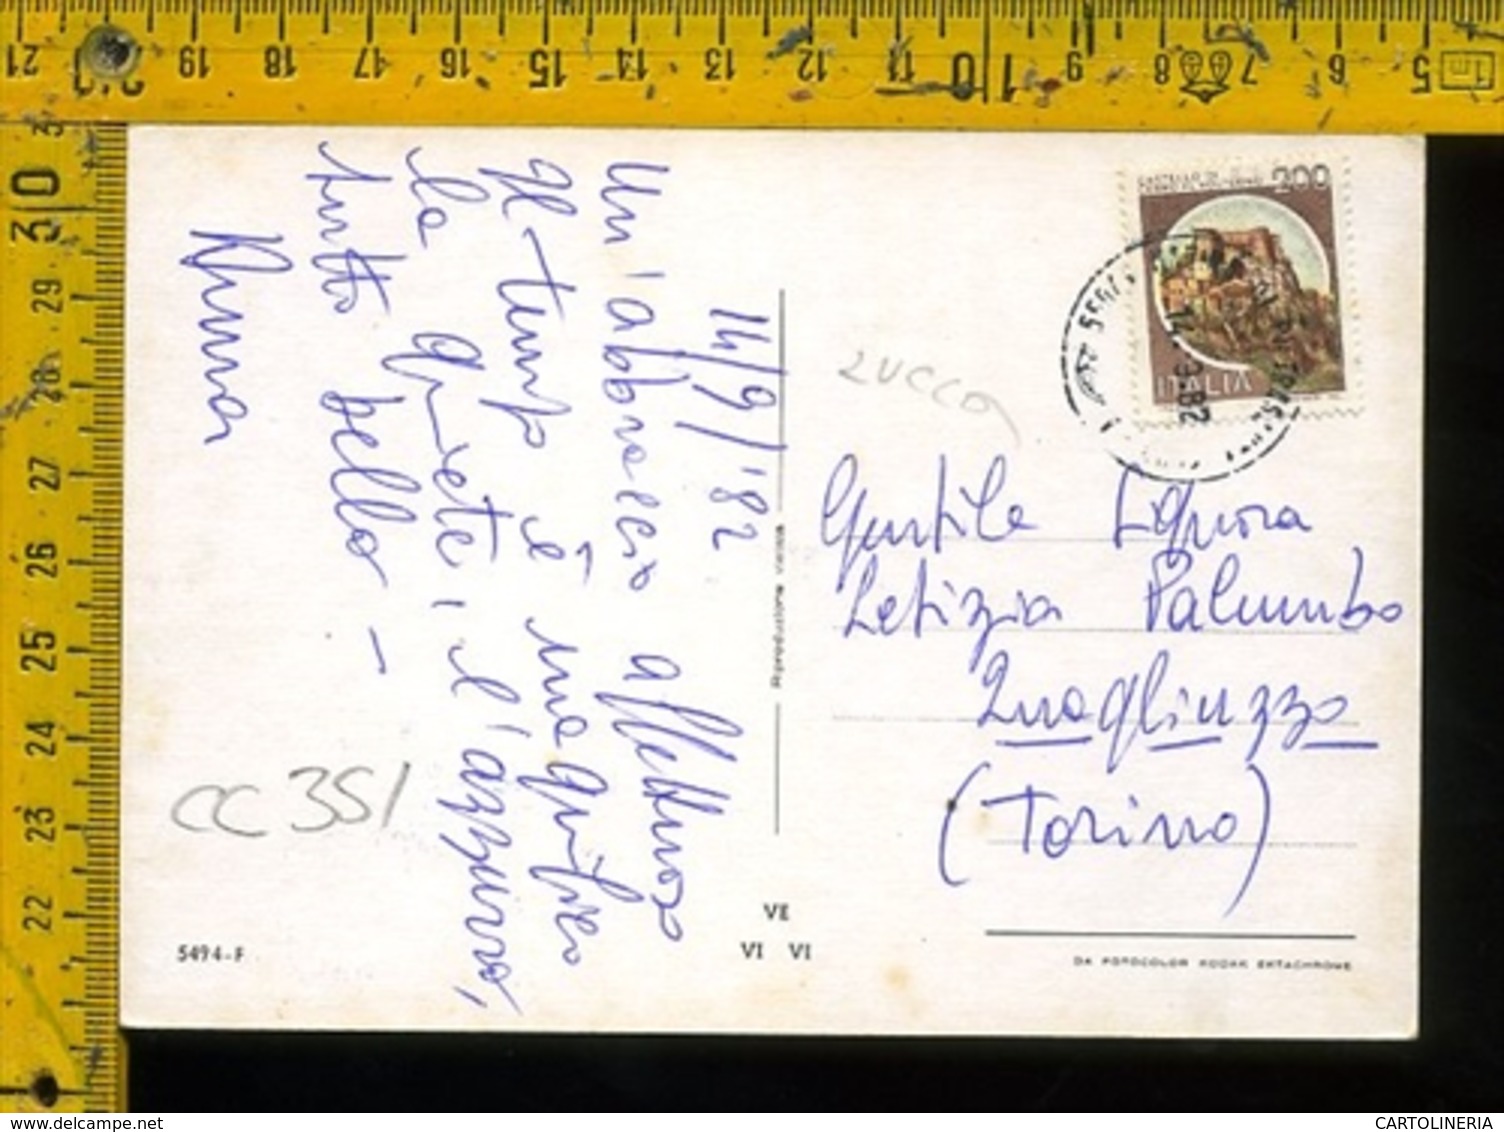 14/9/'82
Un'abbraccio affettuoso
Il tempo è magnifico
la quiete, l'azzurro,
tutto bello –
Anna
Gentile Signora
Letizia Palumbo
Quagliuzzo
(Torino)
ZUCCO
CC 351
200
ITALIA
Riproduzione vietata
VE
VI VI
5494-F
DA FOTOCOLOR KODAK EKTACHROME
21 20 19 18 17 16 15 14 13 12 11 10 9 8 7 6 5
30 29 28 27 26 25 24 23 22
www.delcampe.net
CARTOLINERIA